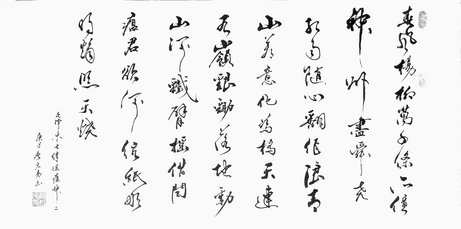 春風楊柳萬千條六億
神州盡舜堯
紅雨随心翻作浪青
山着意化為橋天連
五嶺銀鋤落地動
三河鐵臂搖借問
瘟君欲何往紙船
明燭照天燒
毛澤東七律送瘟神二